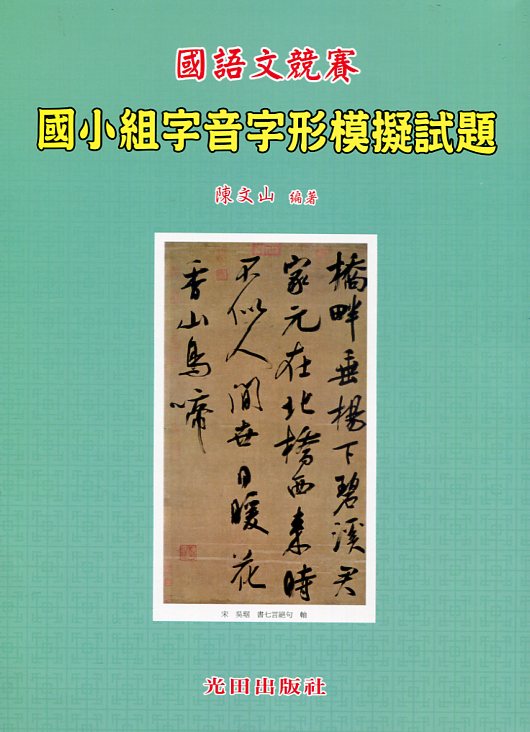 國語文競賽
國小組字音字形模擬試題
陳文山 編著
橋畔垂楊下碧溪君
家元在北橋西來時
不似人間世日暖花
香山鳥啼
宋 吳琚 書七言絕句 軸
光田出版社